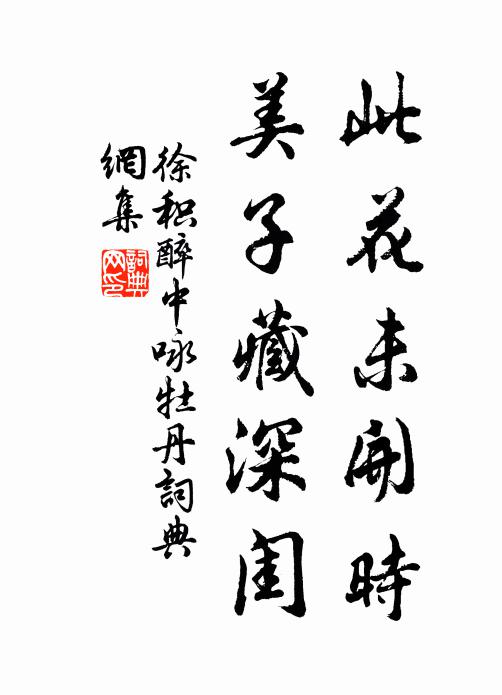 此花未開時
美子藏深闺
徐积醉中咏牡丹詞典
網集
詞典网印